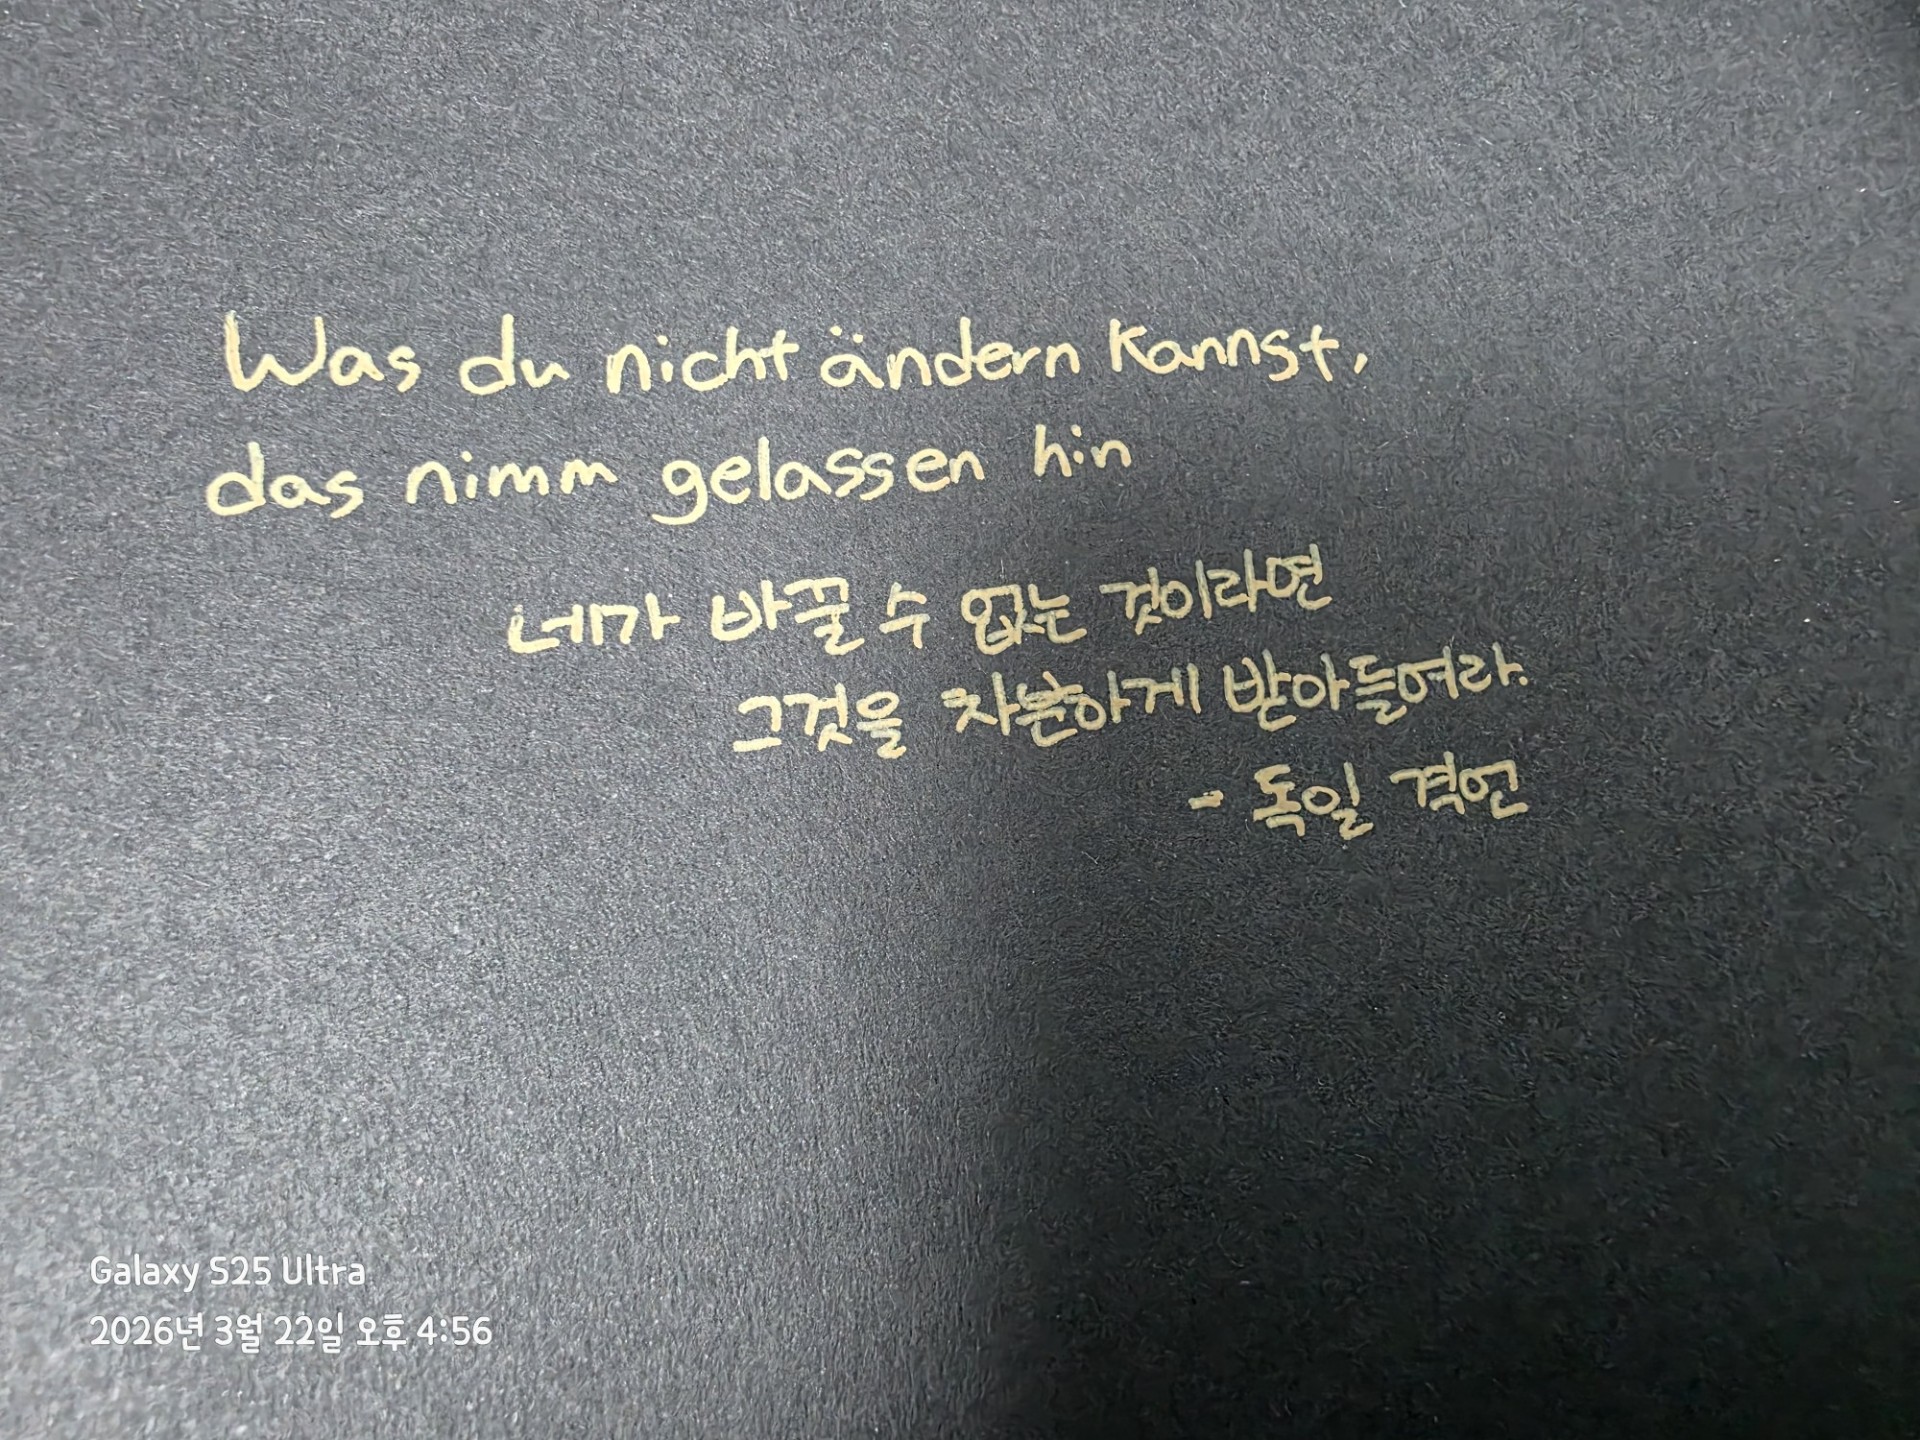 Was du nicht ändern kannst,
das nimm gelassen hin
네가 바꿀 수 없는 것이라면
그것을 차분하게 받아들여라.
- 독일 격언
Galaxy S25 Ultra
2026년 3월 22일 오후 4:56